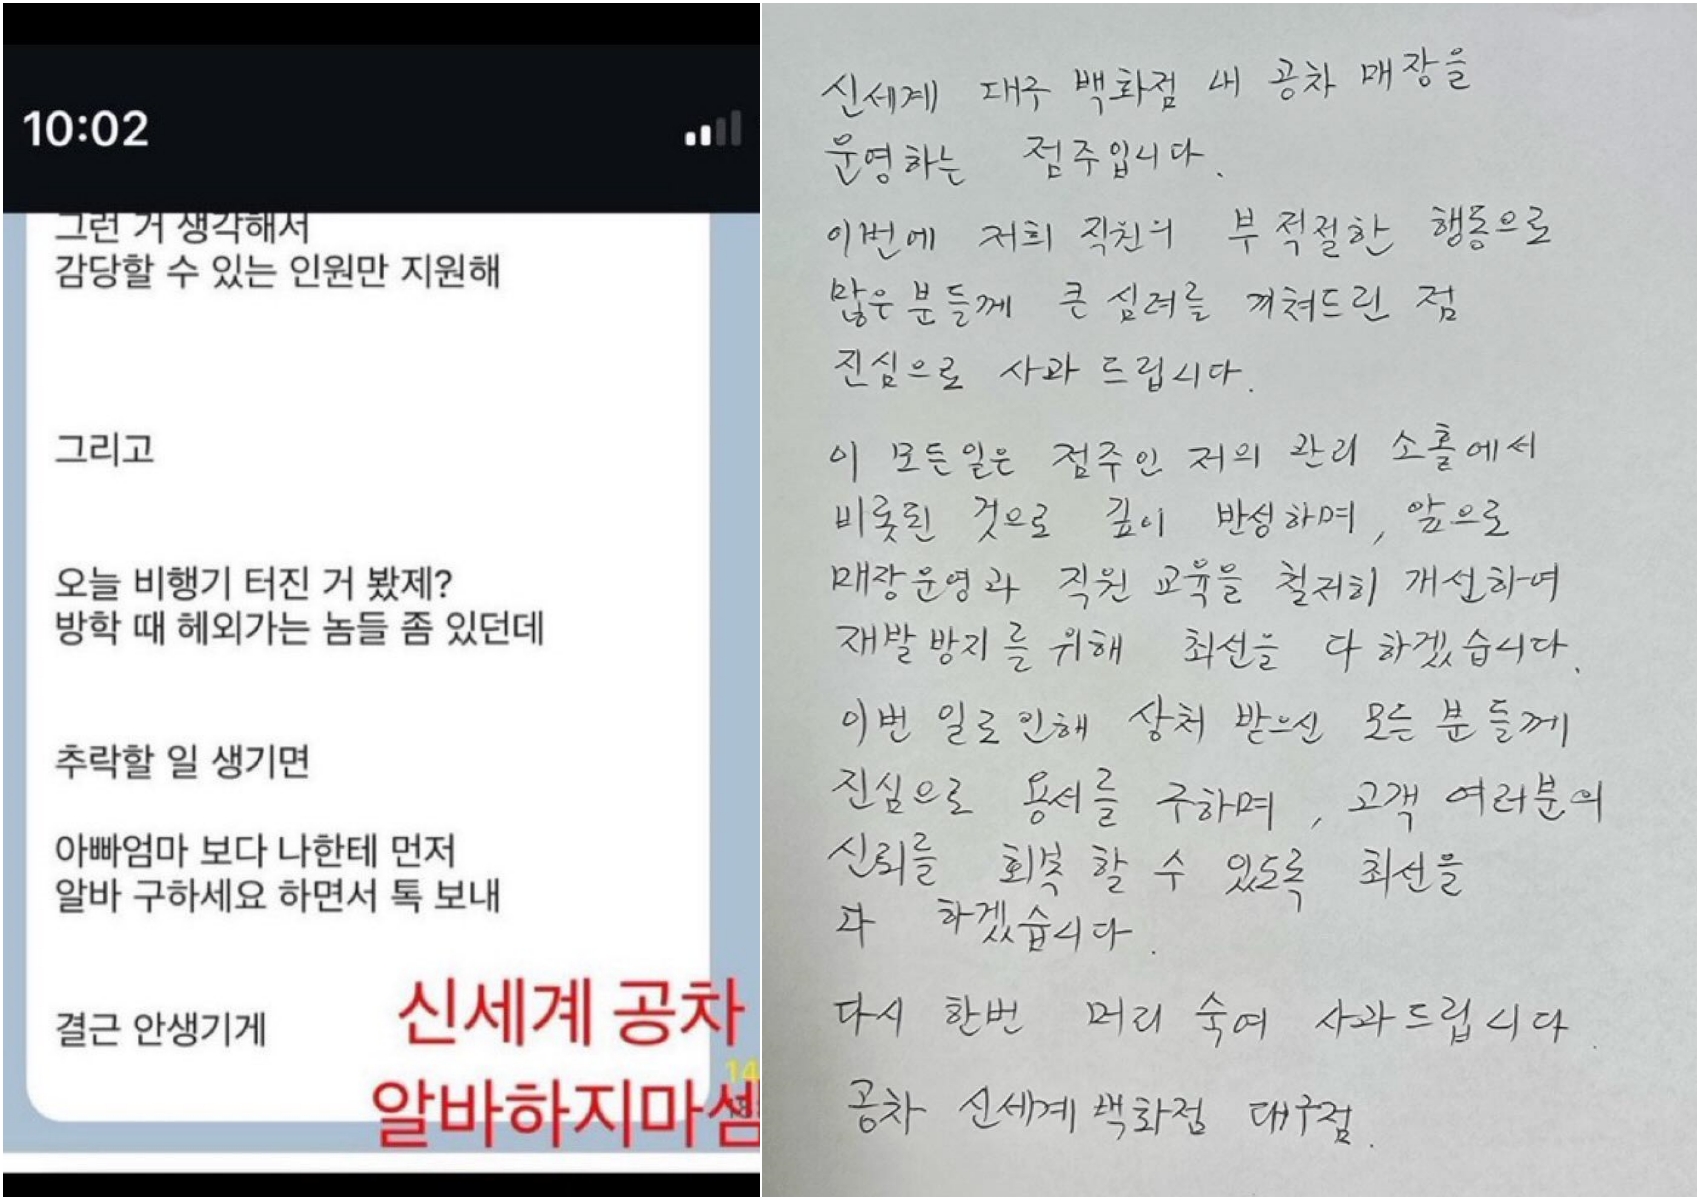 10:02
그런 거 생각해서
감당할 수 있는 인원만 지원해
그리고
오늘 비행기 터진 거 봤제?
방학 때 헤외가는 놈들 좀 있던데
추락할 일 생기면
아빠엄마 보다 나한테 먼저
알바 구하세요 하면서 톡 보내
결근 안생기게
신세계 공차
14
알바하지마셈
신세계 대구 백화점 내 공차 매장을
운영하는 점주입니다.
이번에 저희 직원의 부적절한 행동으로
많은 분들께 큰 심려를 끼쳐드린 점
진심으로 사과 드립니다.
이 모든일은 점주인 저의 관리 소홀에서
비롯된 것으로 깊이 반성하며, 앞으로
매장운영과 직원 교육을 철저히 개선하여
재발 방지를 위해 최선을 다 하겠습니다.
이번 일로 인해 상처 받으신 모든 분들께
진심으로 용서를 구하며, 고객 여러분의
신뢰를 회복 할 수 있도록 최선을
다 하겠습니다.
다시 한번 머리 숙여 사과드립니다.
공차 신세계백화점 대구점.